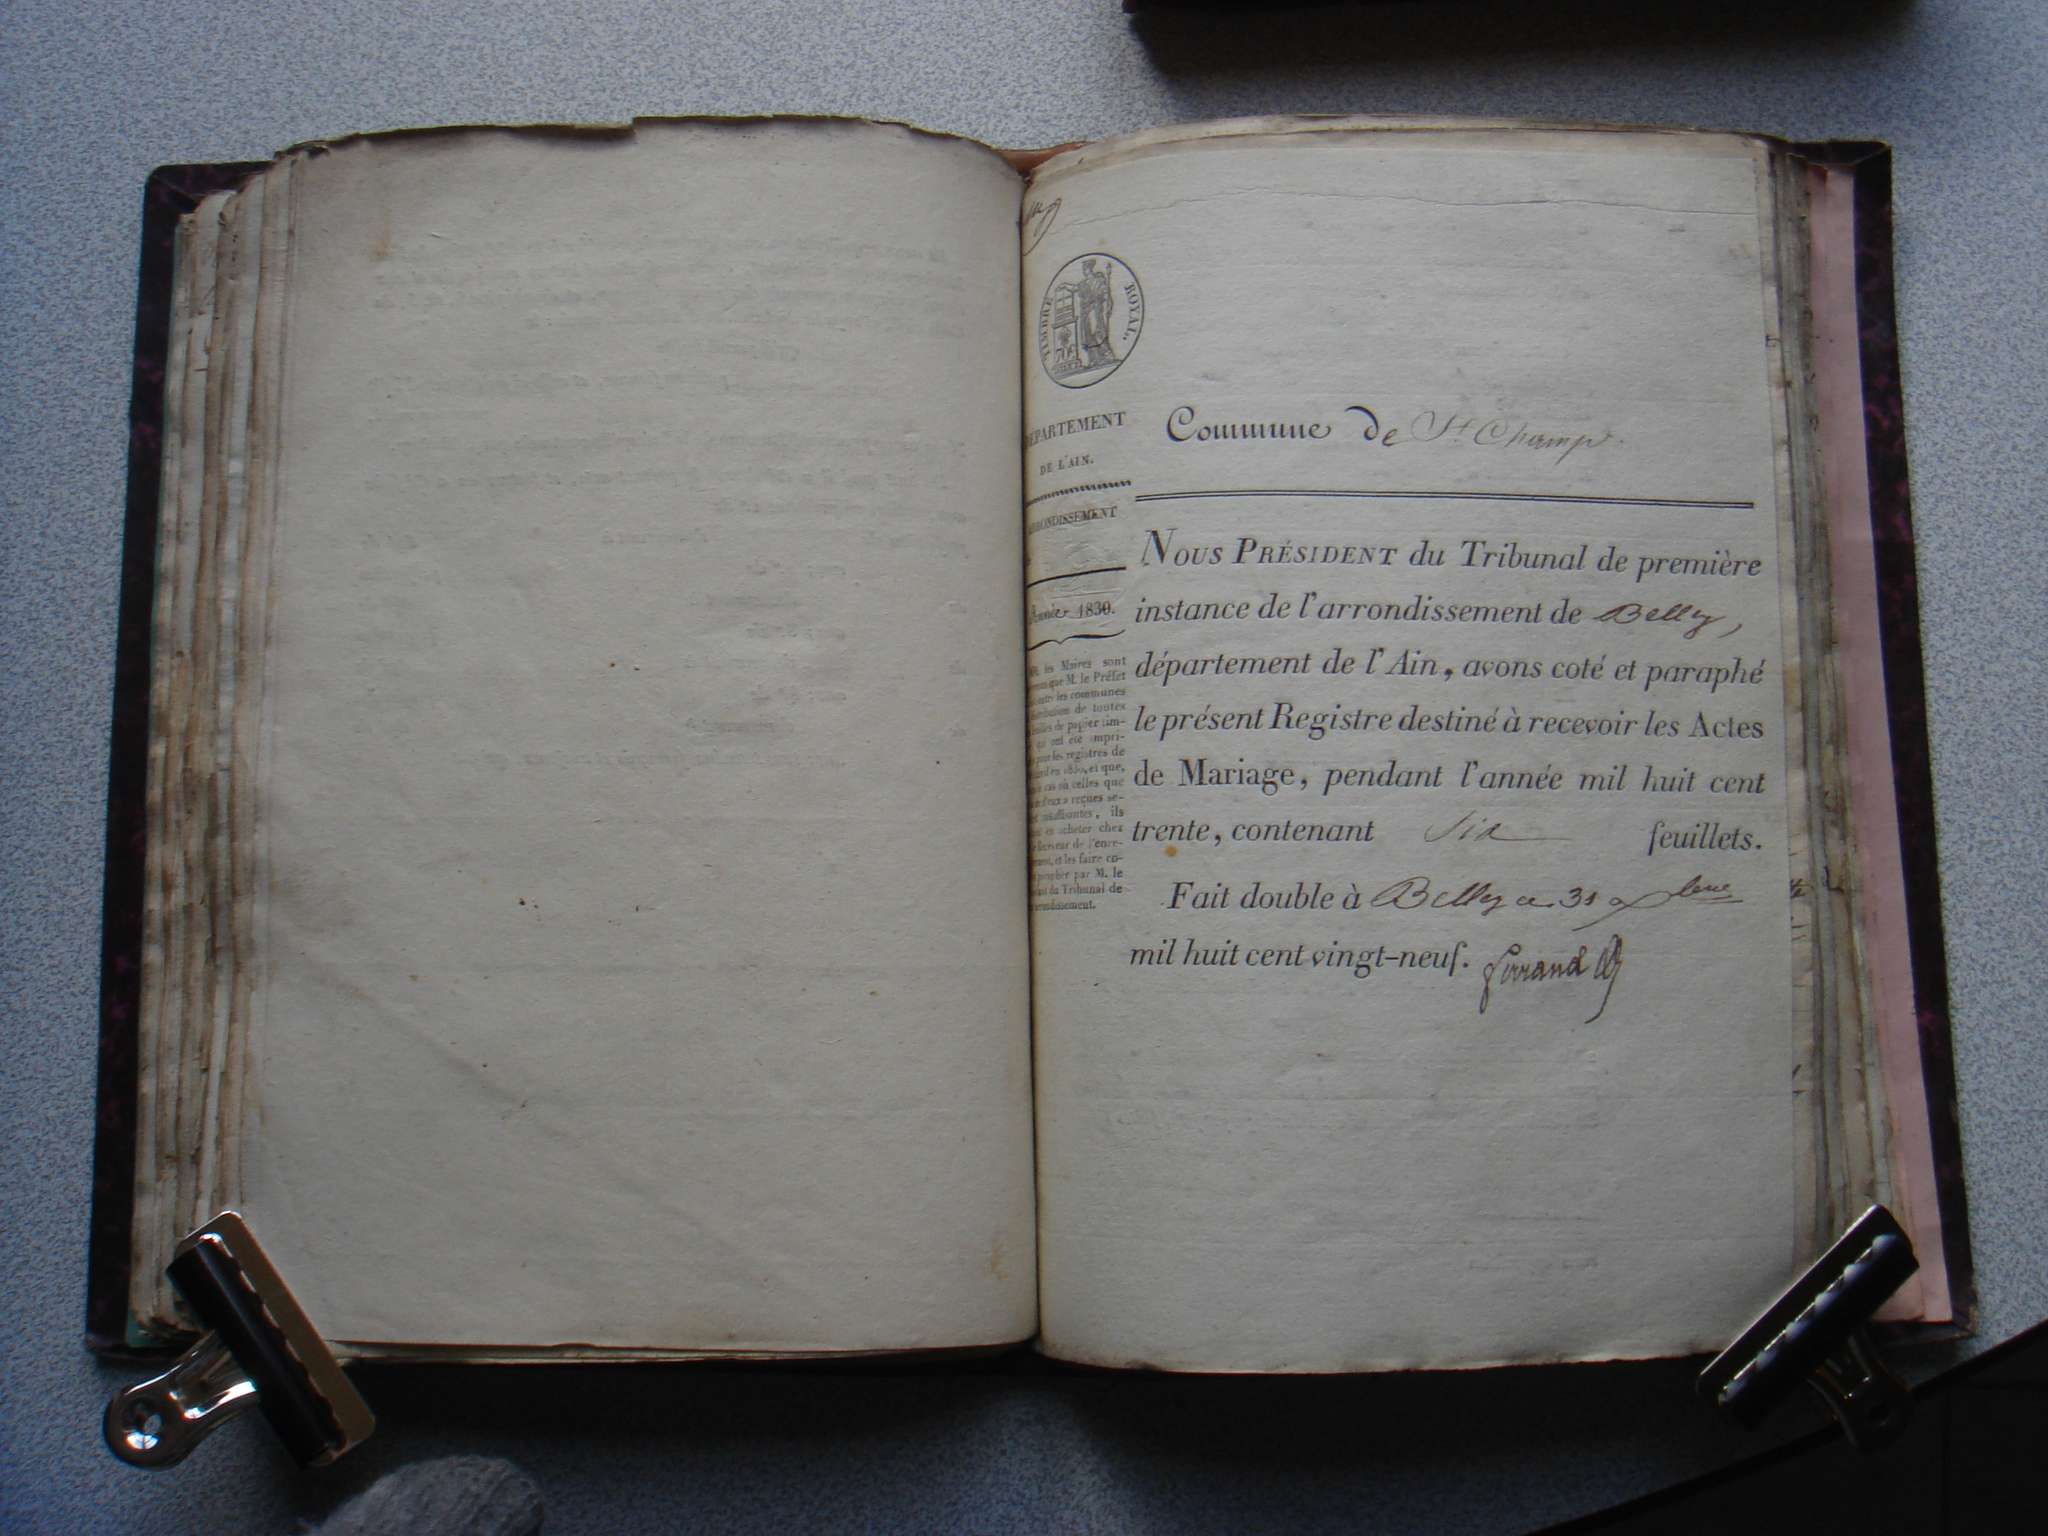 TIMBRE ROYAL
DÉPARTEMENT
DE L'AIN.
Commune de St Champ
NOUS PRÉSIDENT du Tribunal de première
instance de l'arrondissement de Belley,
département de l'Ain, avons coté et paraphé
le présent Registre destiné à recevoir les Actes
de Mariage, pendant l'année mil huit cent
trente, contenant six feuillets.
Fait double à Belley ce 31 Xbre
mil huit cent vingt-neuf. Ferrand
ARRONDISSEMENT
Année 1830.
les Maires sont
que M. le Préfet
les communes
de toutes
de papier tim-
qui ont été impri-
pour les registres de
en 1830, et que,
cas où celles que
reçues se-
insuffisantes, ils
en acheter chez
Receveur de l'enre-
et les faire co-
parapher par M. le
du Tribunal de